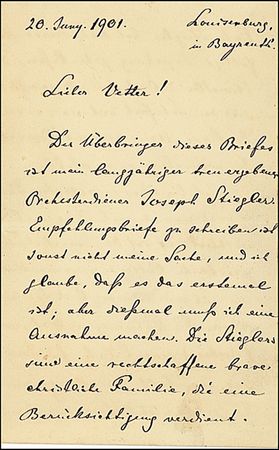 20. Juny. 1901.
Louisenburg,
in Bayreuth.
Lieber Vetter!
Der Überbringer dieses Briefes
ist mein langjähriger treu ergebener
Orchesterdiener Joseph Stiegler.
Empfehlungsbriefe zu schreiben ist
sonst nicht meine Sache, und ich
glaube, daß es das erstemal
ist; aber dießmal muß ich eine
Ausnahme machen. Die Stiegler
sind eine rechtschaffene brave
christliche Familie, die eine
Berücksichtigung verdient.